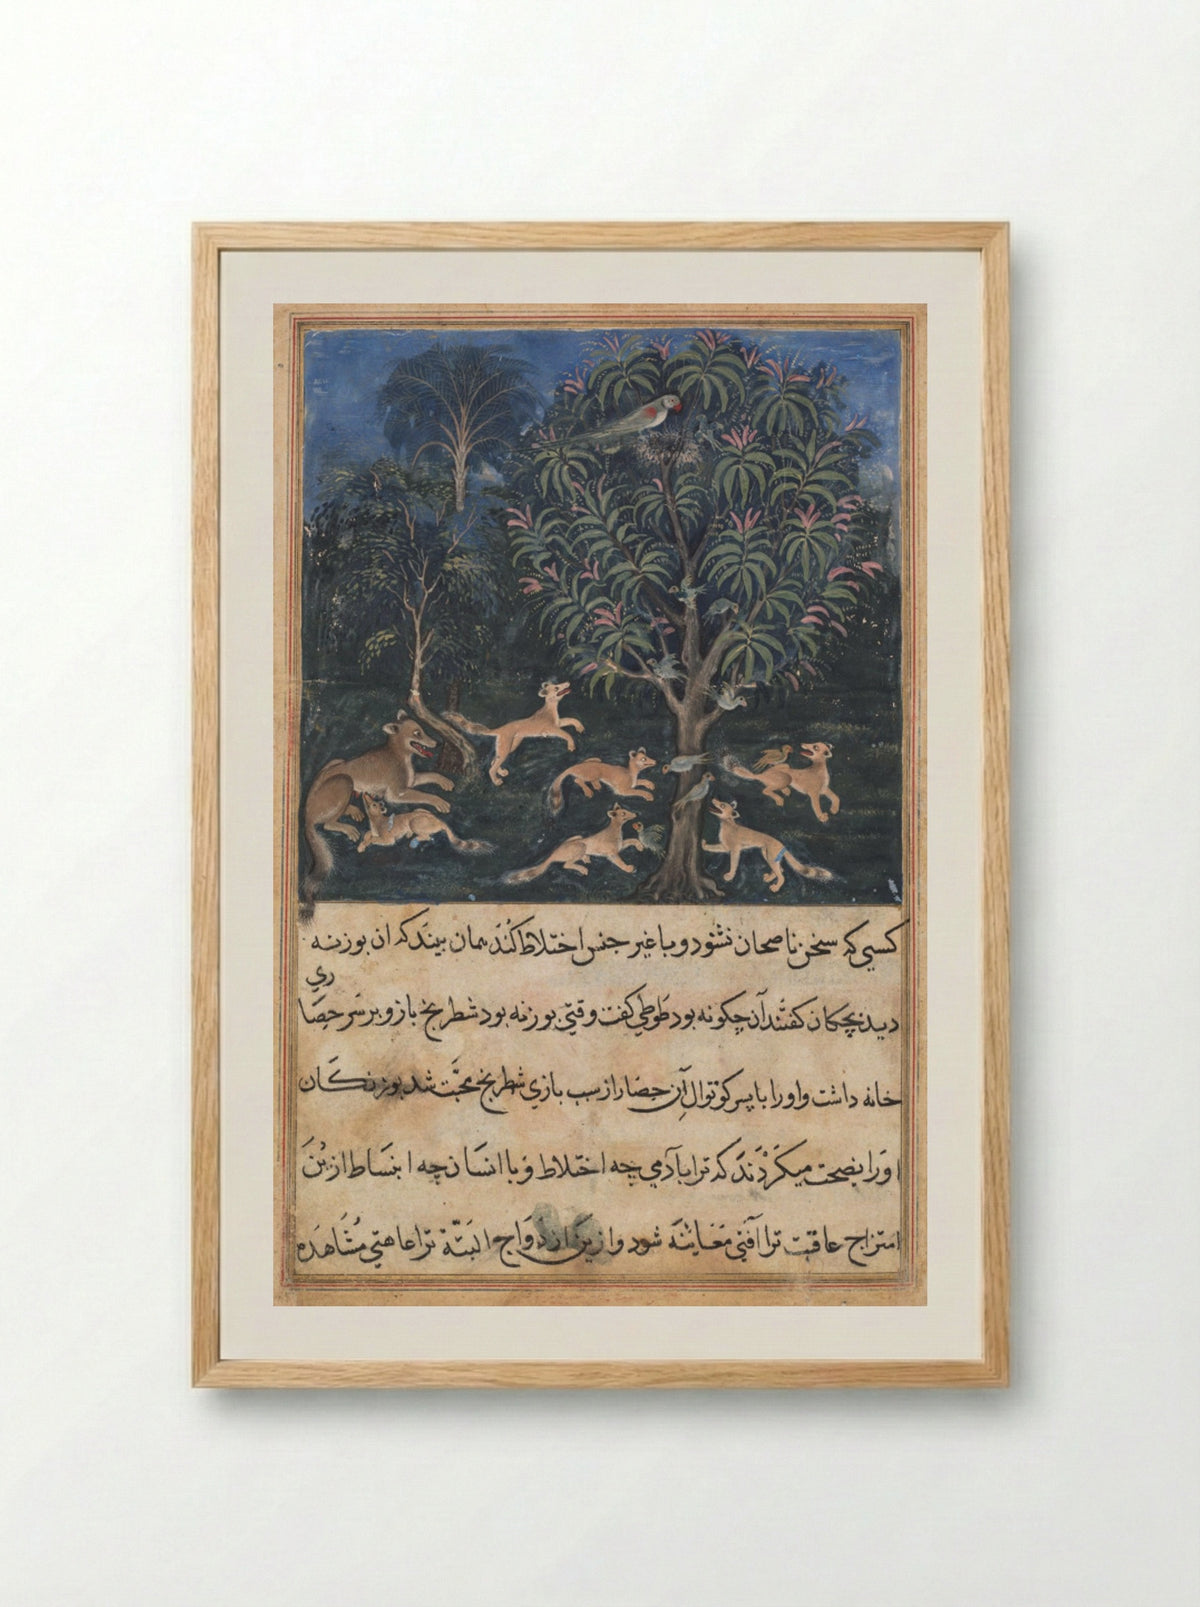 کسی که سخن ناصحان نشنود و با غیر جنس اختلاط کند همان بیند که ان بوزنه
دید بچکان کفتند آن چکونه بود طوطی کفت وقتی بوزنه بود شطرنج باز و بر سر حصاری
خانه داشت و او را با پسر کوتوال آن حصار از سبب بازی شطرنج محبت شد بوزنکان
او را نصحت میکردند که ترا با آدمی چه اختلاط و با انسان چه ابنساط از ین
امتزاج عاقبت ترا آفتی معاینه شود و ازین ازدواج البتة ترا عاهتی مشاهده